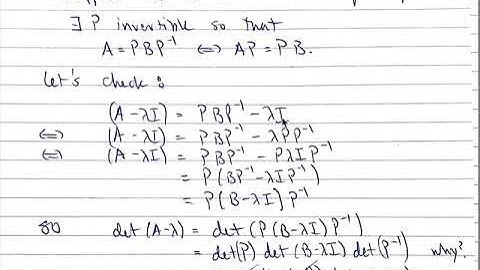 ∃ P invertible so that
A = PBP⁻¹ ⟺ AP = PB.
Let's check:
(A - λI) = PBP⁻¹ - λI
⟺ (A - λI) = PBP⁻¹ - λPP⁻¹
⟺ (A - λI) = PBP⁻¹ - PλIP⁻¹
= P(BP⁻¹ - λIP⁻¹)
= P(B - λI)P⁻¹
so det(A - λ) = det(P(B - λI)P⁻¹)
= det(P) det(B - λI) det(P⁻¹) why?